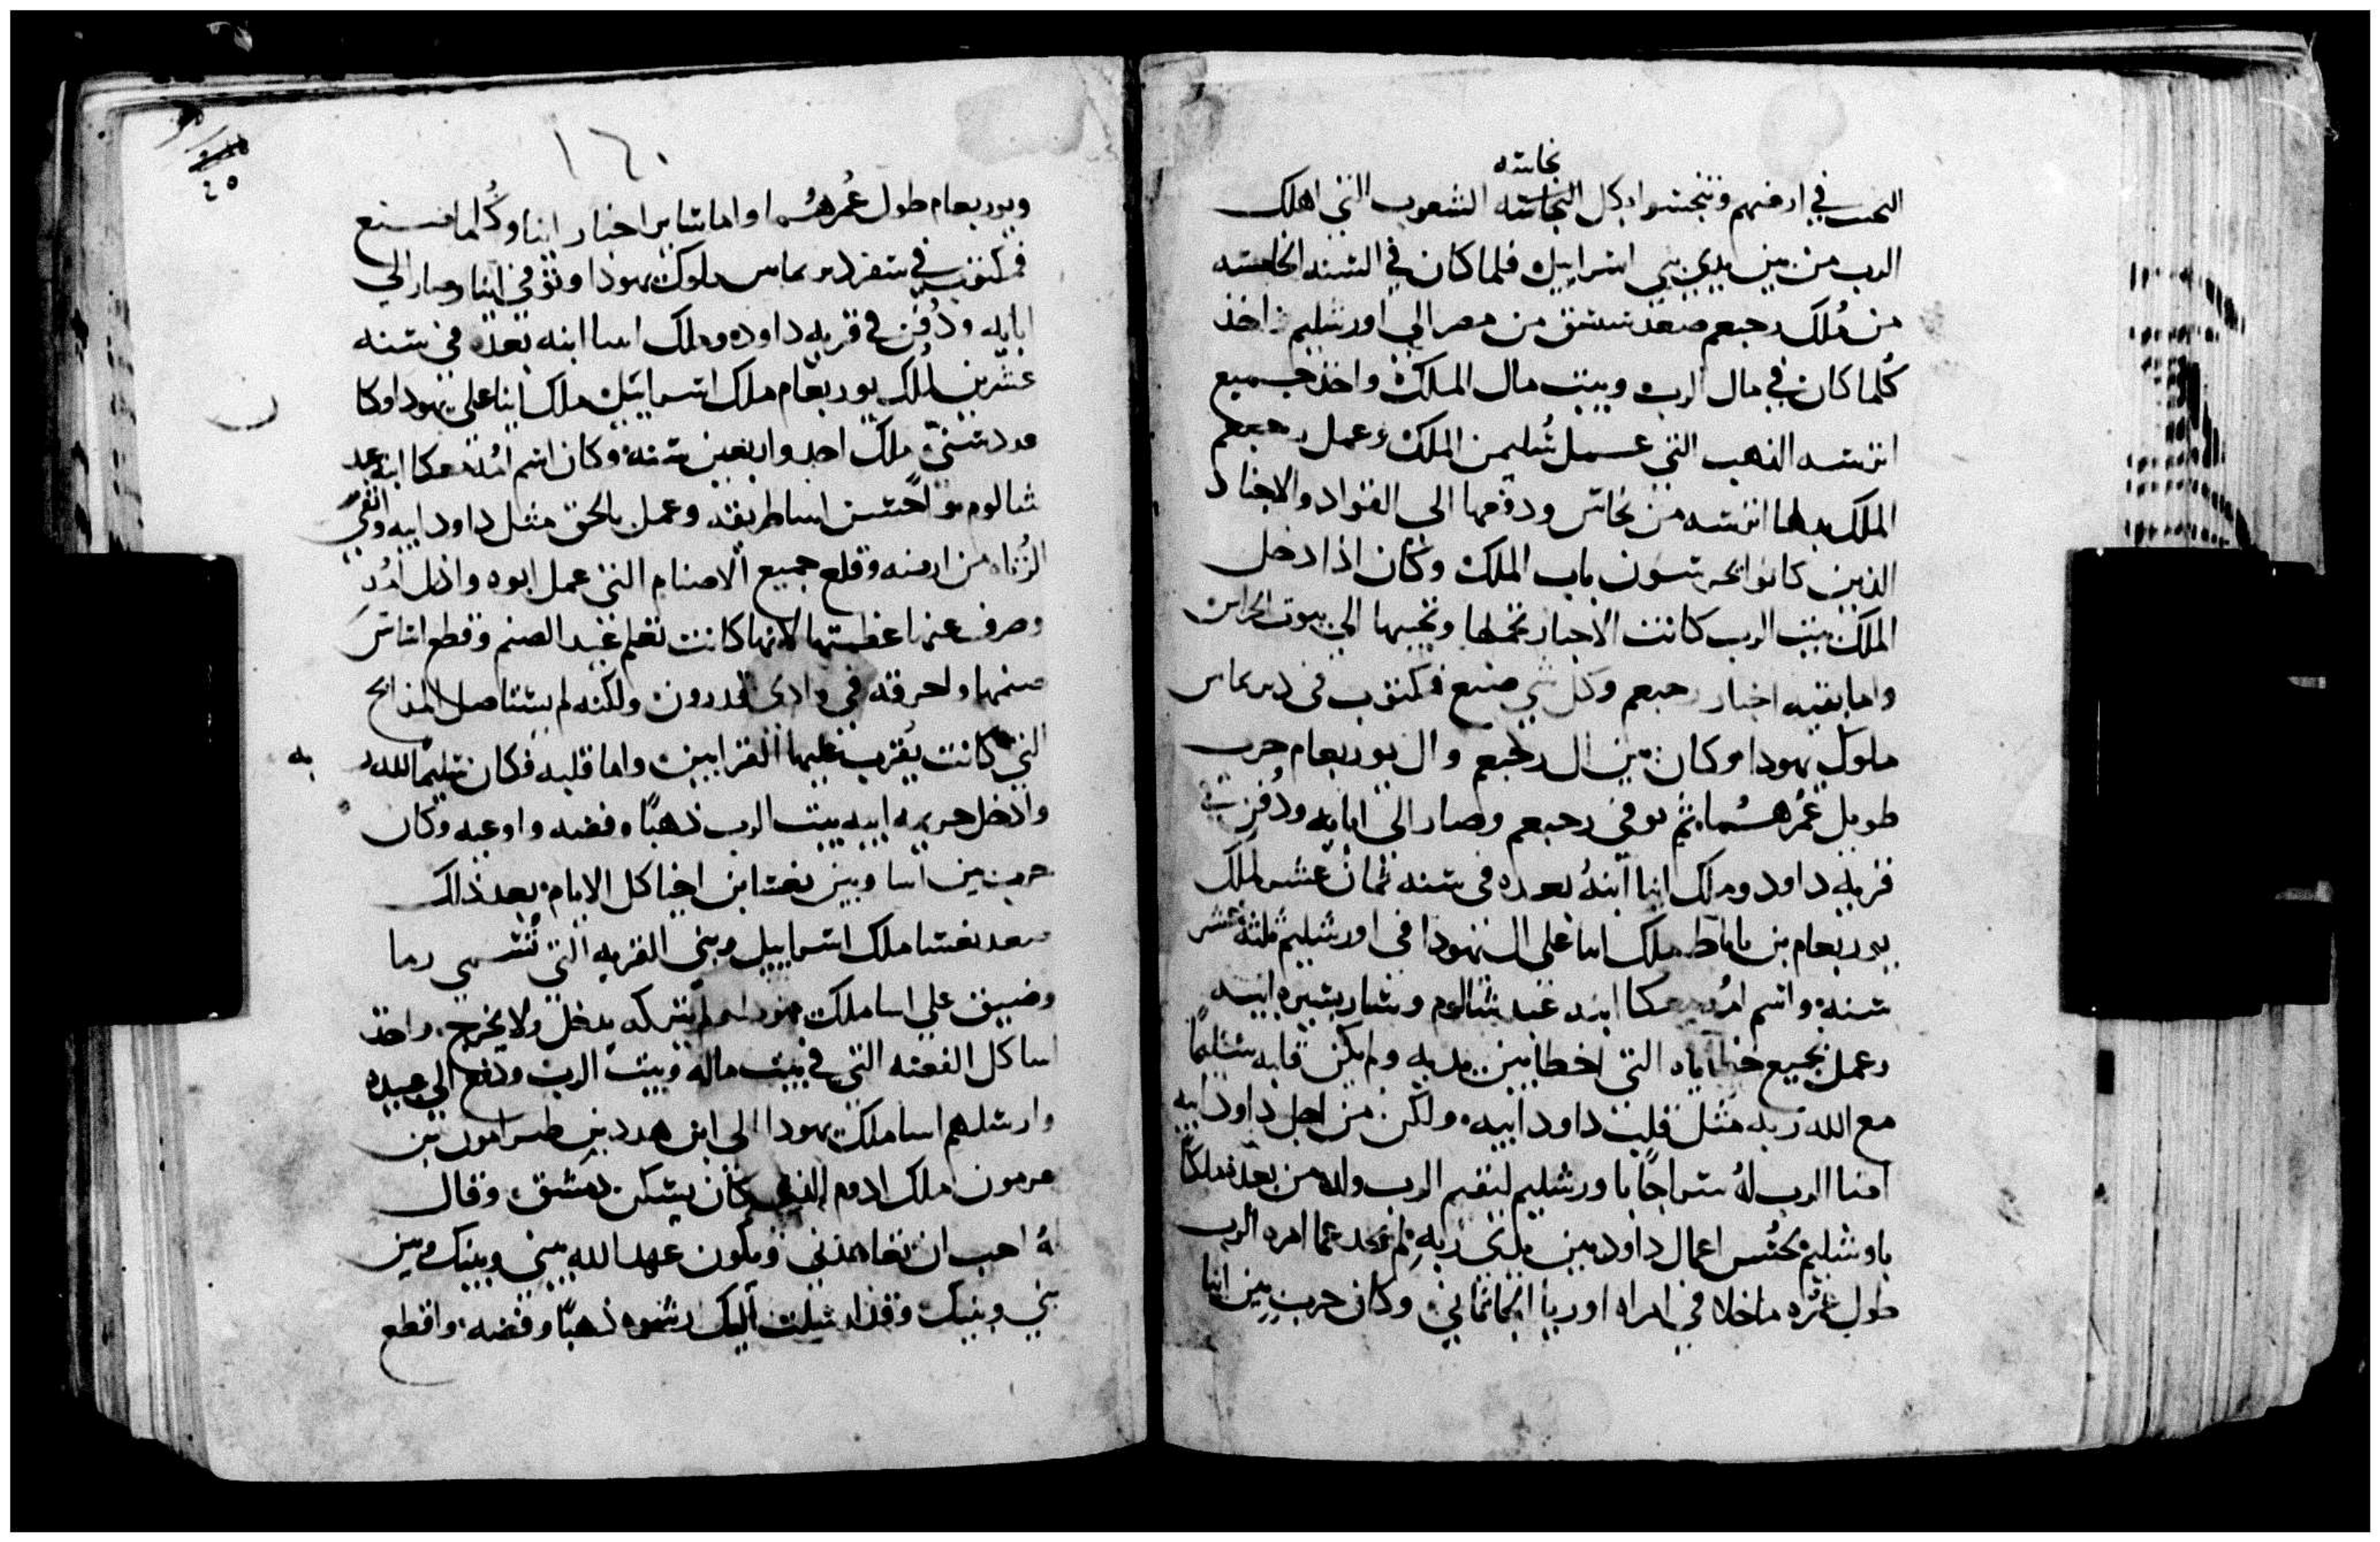 نجاسه
في ارضهم وتنجسوا بكل النجاسه الشعوب التي اهلك
الرب من بين يدي بني اسراييل فلما كان في السنه الخامسه
من مُلك رحبعم صعد سسق من مصر الي اورشليم واخذ
كُلما كان في مال الرب وبيت مال الملك واخذ جميع
اترسه الذهب التي عمل سُليمن الملك وعمل رحبعم
الملك بدلها اترسه من نحاس ودفعها الي القواد والاجناد
الذين كانوا يحرسون باب الملك وكان اذا دخل
الملك بيت الرب كانت الاجناد تحملها وتجيبها الي بيوت الحراس
واما بقيه اخبار رحبعم وكل شي صنع فمكتوب في دبريماس
ملوك يهودا وكان بين ال رحبعم وال يوربعام حرب
طويل عُمرهُما ثم توفي رحبعم وصار الي ابايه ودُفن في
قريه داود وملك ابيا ابنهُ بعده في سنه ثمان عشر لملك
يوربعام بن ناباط ملك ابيا علي ال يهودا في اورشليم ثلثه عشر
سنه واسم امُه معكا ابنه عبد شالوم وسار بسيره ابيه
وعمل بجميع خطاياه التي اخطا بين يديه ولم يكن قلبه سليمًا
مع الله ربه مثل قلب داود ابيه ولكن من اجل داود ابيه
الرب لهُ سراجًا باورشليم ليقيم الرب ولده من بعده ملكًا
باورشليم بحُسن اعمال داود بين يدي ربه لم يحد عما امره الرب
طول عُمره ماخلا في امراه اوريا وكان حرب بين ابيا
١٦٠
٤٥
ويوربعام طول عُمرهُما واما ساير اخبار ابيا وكُلما صنع
فمكتوب في سفر دبريماس ملوك يهودا وتوفي ابيا وصار الي
ابايه ودُفن في قريه داود وملك اسا ابنه بعده في سنه
عشرين لمُلك يوربعام ملك اسراييل ملك ابيا علي يهودا وكا
عدد سني ملك احد واربعين سنه وكان اسم امُه معكا ابنه عبد
شالوم واحسن اسا طريقه وعمل بالحق مثل داود ابيه وانفي
الزُناه من ارضه وقلع جميع الاصنام التي عمل ابوه واذل امُه
وصرف عنها عظمتها لانها كانت تعلم عيد الصنم وقطع اساس
صنمها واحرقه في وادي قدرون ولكنه لم يستاصل المذابح
التي كانت يُقرب عليها القرابين واما قلبه فكان سليمًا لله
به
وادخل ابيه بيت الرب ذهبًا وفضه واوعيه وكان
حرب بين اسا وبين بعشا بن اخيا كل الايام بعد ذالك
صعد بعشا ملك اسراييل وبني القريه التي تُسمي رما
وضيق علي اسا ملك يهودا ولم يتركه يدخل ولا يخرج واخذ
اسا كل الفضه التي في بيت ماله وبيت الرب ودفع الي عبيده
وارسلهم اسا ملك يهودا الي ابن هدد بن طبرامون بن
ملك ادوم الذي كان يسكن دمشق وقال
لهُ احب ان تعاهدني ويكون عهد الله بيني وبينك وبين
بني وبنيك وقد ارسلت اليك رشوه ذهبًا وفضه واقطع